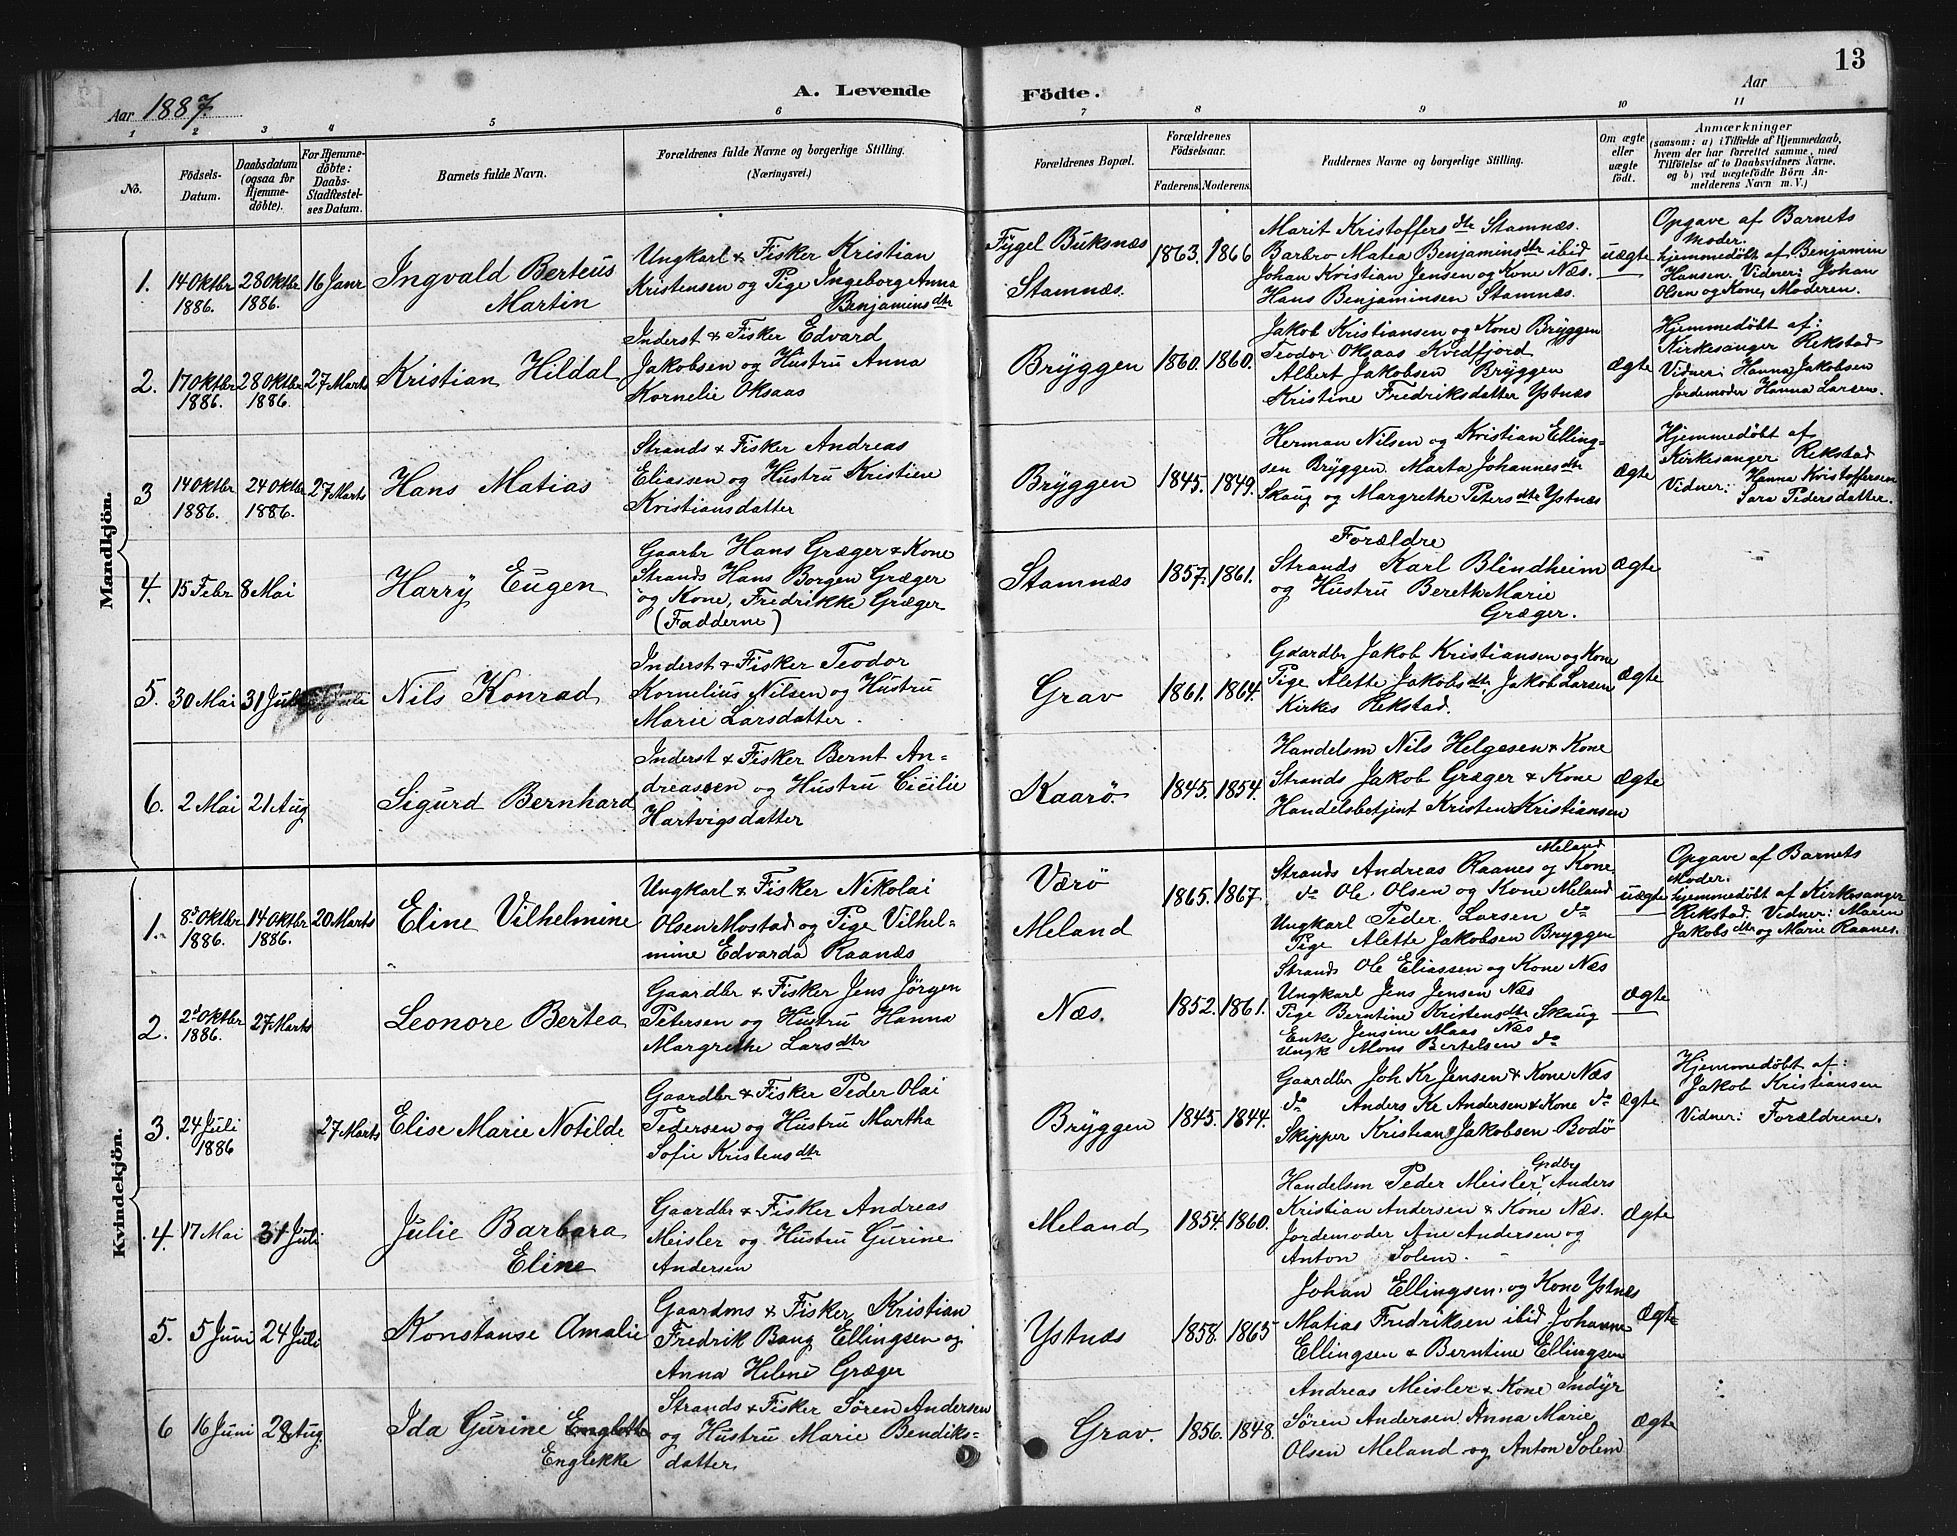 13
A. Levende Födte.
Aar 1887.
Aar
1 2 3 4 5 6 7 8 9 10 11
No.
Födsels-
Datum.
Daabsdatum
(ogsaa for
Hjemme-
döbte).
For Hjemme-
döbte:
Daabs-
Stadfæstel-
ses Datum.
Barnets fulde Navn.
Forældrenes fulde Navne og borgerlige Stilling.
(Næringsvei.)
Forældrenes Bopæl.
Forældrenes
Födselsaar.
Faderens. Moderens.
Faddernes Navne og borgerlige Stilling.
Om ægte
eller
uægte
födt.
Anmærkninger
(saasom: a) i Tilfælde af Hjemmedaab,
hvem der har forrettet samme, med
Tilföielse af to Daabsvidners Navne,
og b) ved uægtefödte Börn An-
melderens Navn m. V.)
Mandkjön.
1. 14 Oktbr 1886. 28 Oktbr 1886. 16 Janr
Ingvald Berteus
Martin
Ungkarl & Fisker Kristian
Kristensen og Pige Ingeborg Anna
Benjaminsdtr
Fygel Buksnæs
Stamnæs.
1863. 1866
Marit Kristoffersdtr Stamnæs.
Barbro Matea Benjaminsdtr ibid
Johan Kristian Jensen og Kone Næs.
Hans Benjaminsen Stamnæs.
uægte
Opgave af Barnets
Moder.
hjemmedöbt af Benjamin
Hansen. Vidner: Johan
Olsen og Kone, Moderen.
2. 17 Oktbr 1886. 28 Oktbr 1886. 27 Marts
Kristian Hildal
Inderst & Fisker Edvard
Jakobsen og Hustru Anna
Kornelie Oksaas
Bryggen
1860. 1860.
Jakob Kristiansen og Kone Bryggen
Teodor Oksaas Kvedfjord
Albert Jakobsen Bryggen
Kristine Fredriksdatter Ystnæs
ægte
Hjemmedöbt af:
Kirkesanger Rekstad
Vidner: Hanna Jakobsen
Jordemoder Hanna Larsen.
3 14 Oktbr 1886. 24 Oktbr 1886. 27 Marts
Hans Matias
Strands & Fisker Andreas
Eliassen og Hustru Kristine
Kristiansdatter
Bryggen
1845. 1849.
Herman Nilsen og Kristian Elling-
sen Bryggen Marta Johannesdtr
Skaug og Margrethe Petersdtr Ystnæs
ægte
Hjemmedöbt af
Kirkesanger Rekstad
Vidner: Hanna Kristoffersen
Sara Pedersdatter.
4. 15 Febr 8 Mai
Harry Eugen
Gaarbr Hans Græger & Kone
Strands Hans Borgen Græger
og Kone, Fredrikke Græger
(Fadderne)
Stamnæs
1857. 1861.
Forældre
Strands Karl Blindheim
og Hustru Bereth Marie
Græger.
ægte
5. 30 Mai 31 Juli
Nils Konrad
Inderst & Fisker Teodor
Kornelius Nilsen og Hustru
Marie Larsdatter.
Grav
1861. 1864.
Gaardbr Jakob Kristiansen og Kone
Pige Alette Jakobsdtr Jakob Larsen
Kirkes Rekstad.
ægte
6. 2 Mai 21 Aug
Sigurd Bernhard
Inderst & Fisker Bernt An-
dreassen og Hustru Cicilie
Hartvigsdatter
Kaarö.
1845. 1854.
Handelsm Nils Helgesen & Kone
Strands Jakob Græger & Kone
Handelsbetjent Kristen Kristiansen
ægte
Kvindekjön.
1. 8d Oktbr 1886. 14 Oktbr 1886. 20 Marts
Eline Vilhelmine
Ungkarl & Fisker Nikolai
Olsen Mostad og Pige Vilhel-
mine Edvarda Raanæs
Værö
Meland
1865. 1867.
Meland
Strands Andreas Raanes og Kone.
do Ole Olsen og Kone Meland
Ungkarl Peder Larsen do
Pige Alette Jakobsen Bryggen
uægte
Opgave af Barnets
Moder.
hjemmedöbt af Kirkesanger
Rekstad. Vidner: Maren
Jakobsdtr og Marie Raanes.
2. 2d Oktbr 1886. 27 Marts
Leonore Bertea
Gaardbr & Fisker Jens Jörgen
Petersen og Hustru Hanna
Margrethe Larsdtr
Næs.
1852. 1861.
Strands Ole Eliassen og Kone Næs
Ungkarl Jens Jensen Næs
Pige Berntine Kristensdtr Skaug
Enke Jensine Maas Næs
Ungk Mons Bertelsen do
ægte
3. 24 Juli 1886 27 Marts
Elise Marie Notilde
Gaardbr & Fisker Peder Olai
Pedersen og Hustru Martha
Sofie Kristensdtr
Bryggen
1845. 1844.
Gaardbr Joh Kr Jensen & Kone Næs
do Anders Kr Andersen & Kone do
Skipper Kristian Jakobsen Bodö
ægte
Hjemmedöbt af:
Jakob Kristiansen
Vidner: Forældrene.
4. 17 Mai 31 Juli
Julie Barbara
Eline
Gaardbr & Fisker Andreas
Meisler og Hustru Gurine
Andersen
Meland
1854. 1860.
Grdbr
Handelsm Peder Meisler, Anders
Kristian Andersen & Kone Næs.
Jordemoder Ane Andersen og
Anton Solem.
ægte
5. 5 Juni 24 Juli
Konstanse Amalie
Gaardms & Fisker Kristian
Fredrik Bang Ellingsen og
Anna Helene Græger
Ystnæs
1858. 1865
Johan Ellingsen og Kone Ystnæs
Matias Fredriksen ibid Johanne
Ellingsen & Berntine Ellingsen
ægte
6 16 Juni 28 Aug
Ida Gurine
Englekke
Strands & Fisker Sören Andersen
og Hustru Marie Bendiks-
datter
Grav.
1856. 1848.
Andreas Meisler & Kone Indyr
Sören Andersen, Anna Marie
Olsen Meland og Anton Solem
ægte